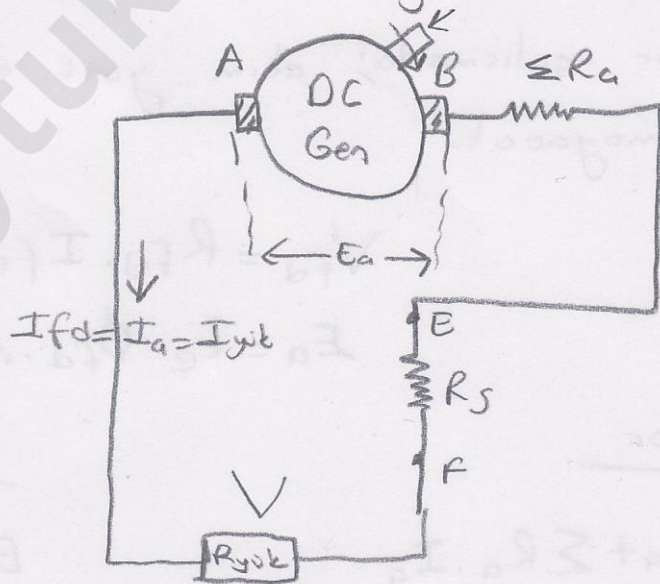 A
B
DC
Gen
ΣRa
Ea
Ifd=Ia=Iyük
E
Rs
F
V
Ryük